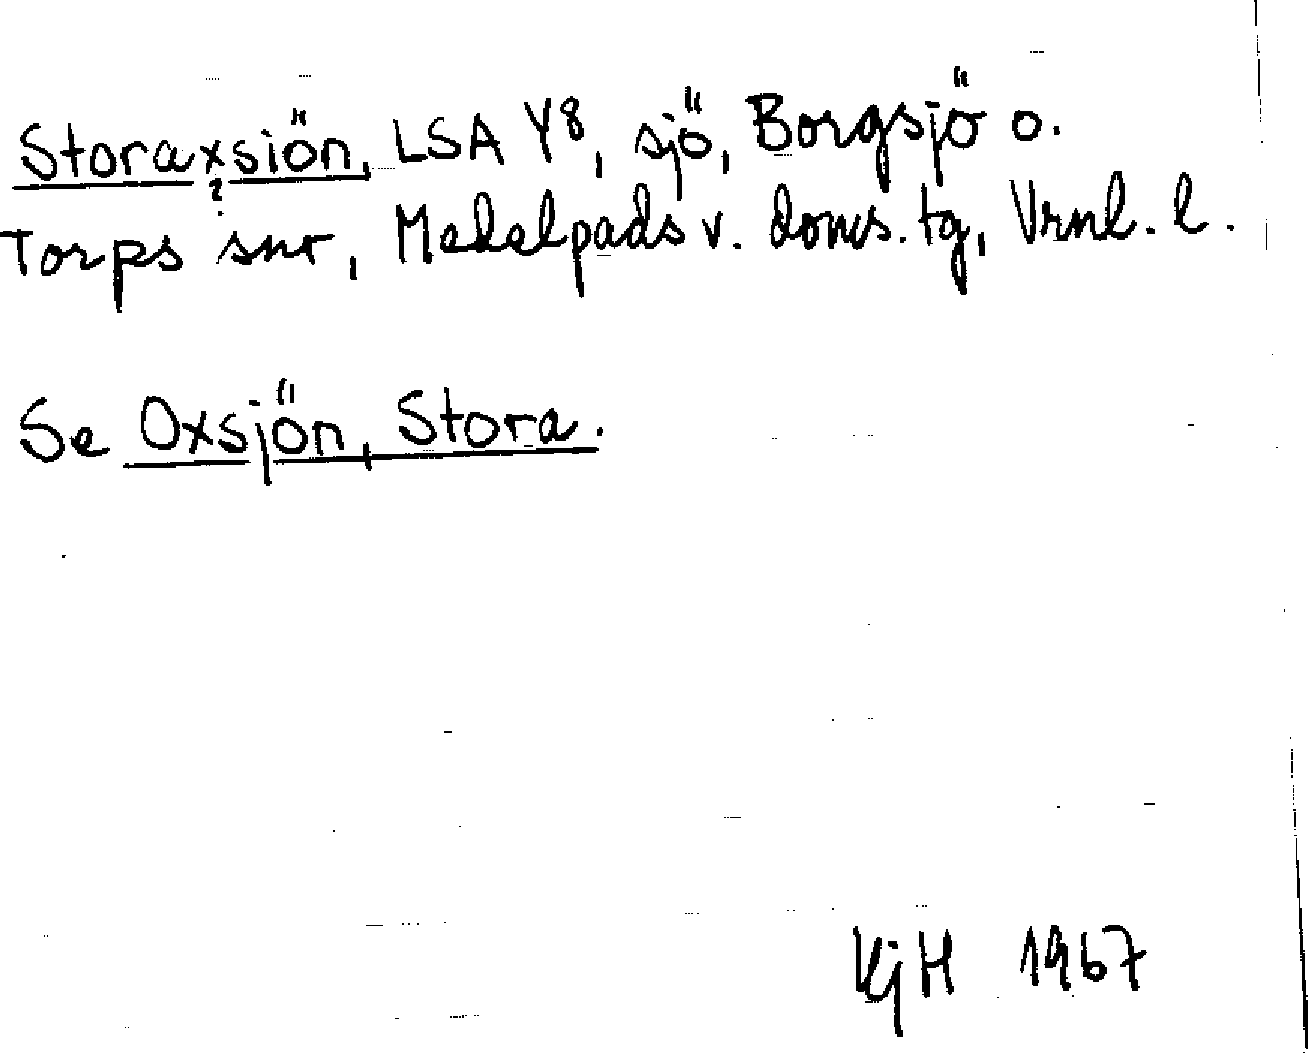 Storaxsiön, LSA Y8, sjö, Borgsjö o.
?
Torps snr, Medelpads v. doms. tg, Vrnl. l.
Se Oxsjön, Stora.
KjH 1967